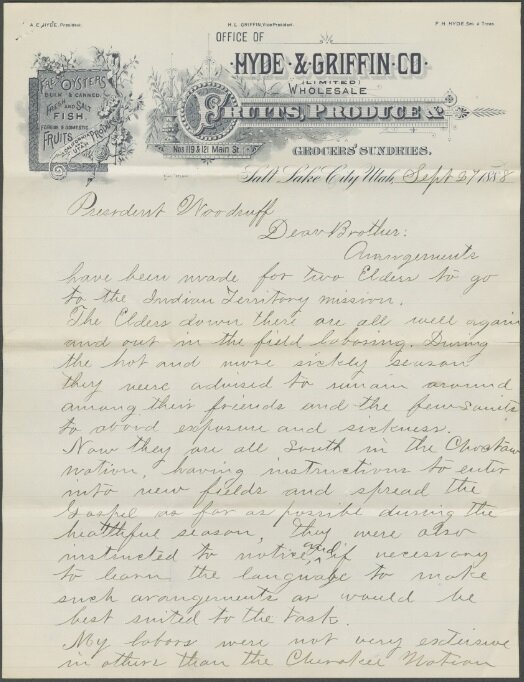 A.E. HYDE, President.
H.L. GRIFFIN, Vice President.
F.H. HYDE, Sec. & Treas.
OFFICE OF
HYDE & GRIFFIN CO.
(LIMITED)
WHOLESALE
FRUITS, PRODUCE &c
Nos 119 & 121 Main St.
GROCERS' SUNDRIES.
OYSTERS
BULK & CANNED.
FRESH AND SALT
FISH.
FOREIGN & DOMESTIC
FRUITS
UTAH
PRODUCE
Salt Lake City, Utah, Sept 27 1888
President Woodruff
Dear Brother:
Arangements
have been made for two Elders to go
to the Indian Territory mission.
The Elders down there are all well again
and out in the field laboring. During
the hot and more sickly season
they were advised to remain around
among their friends and the few saints
to avoid exposure and sickness.
Now they are all South in the Choctaw
nation, having instructions to enter
into new fields and spread the
Gospel as far as possible during the
healthful season, they were also
instructed to notice, and if necessary
to learn the language to make
such arangements as would be
best suited to the task.
My labors were not very extensive
in others than the Cherokee Nation